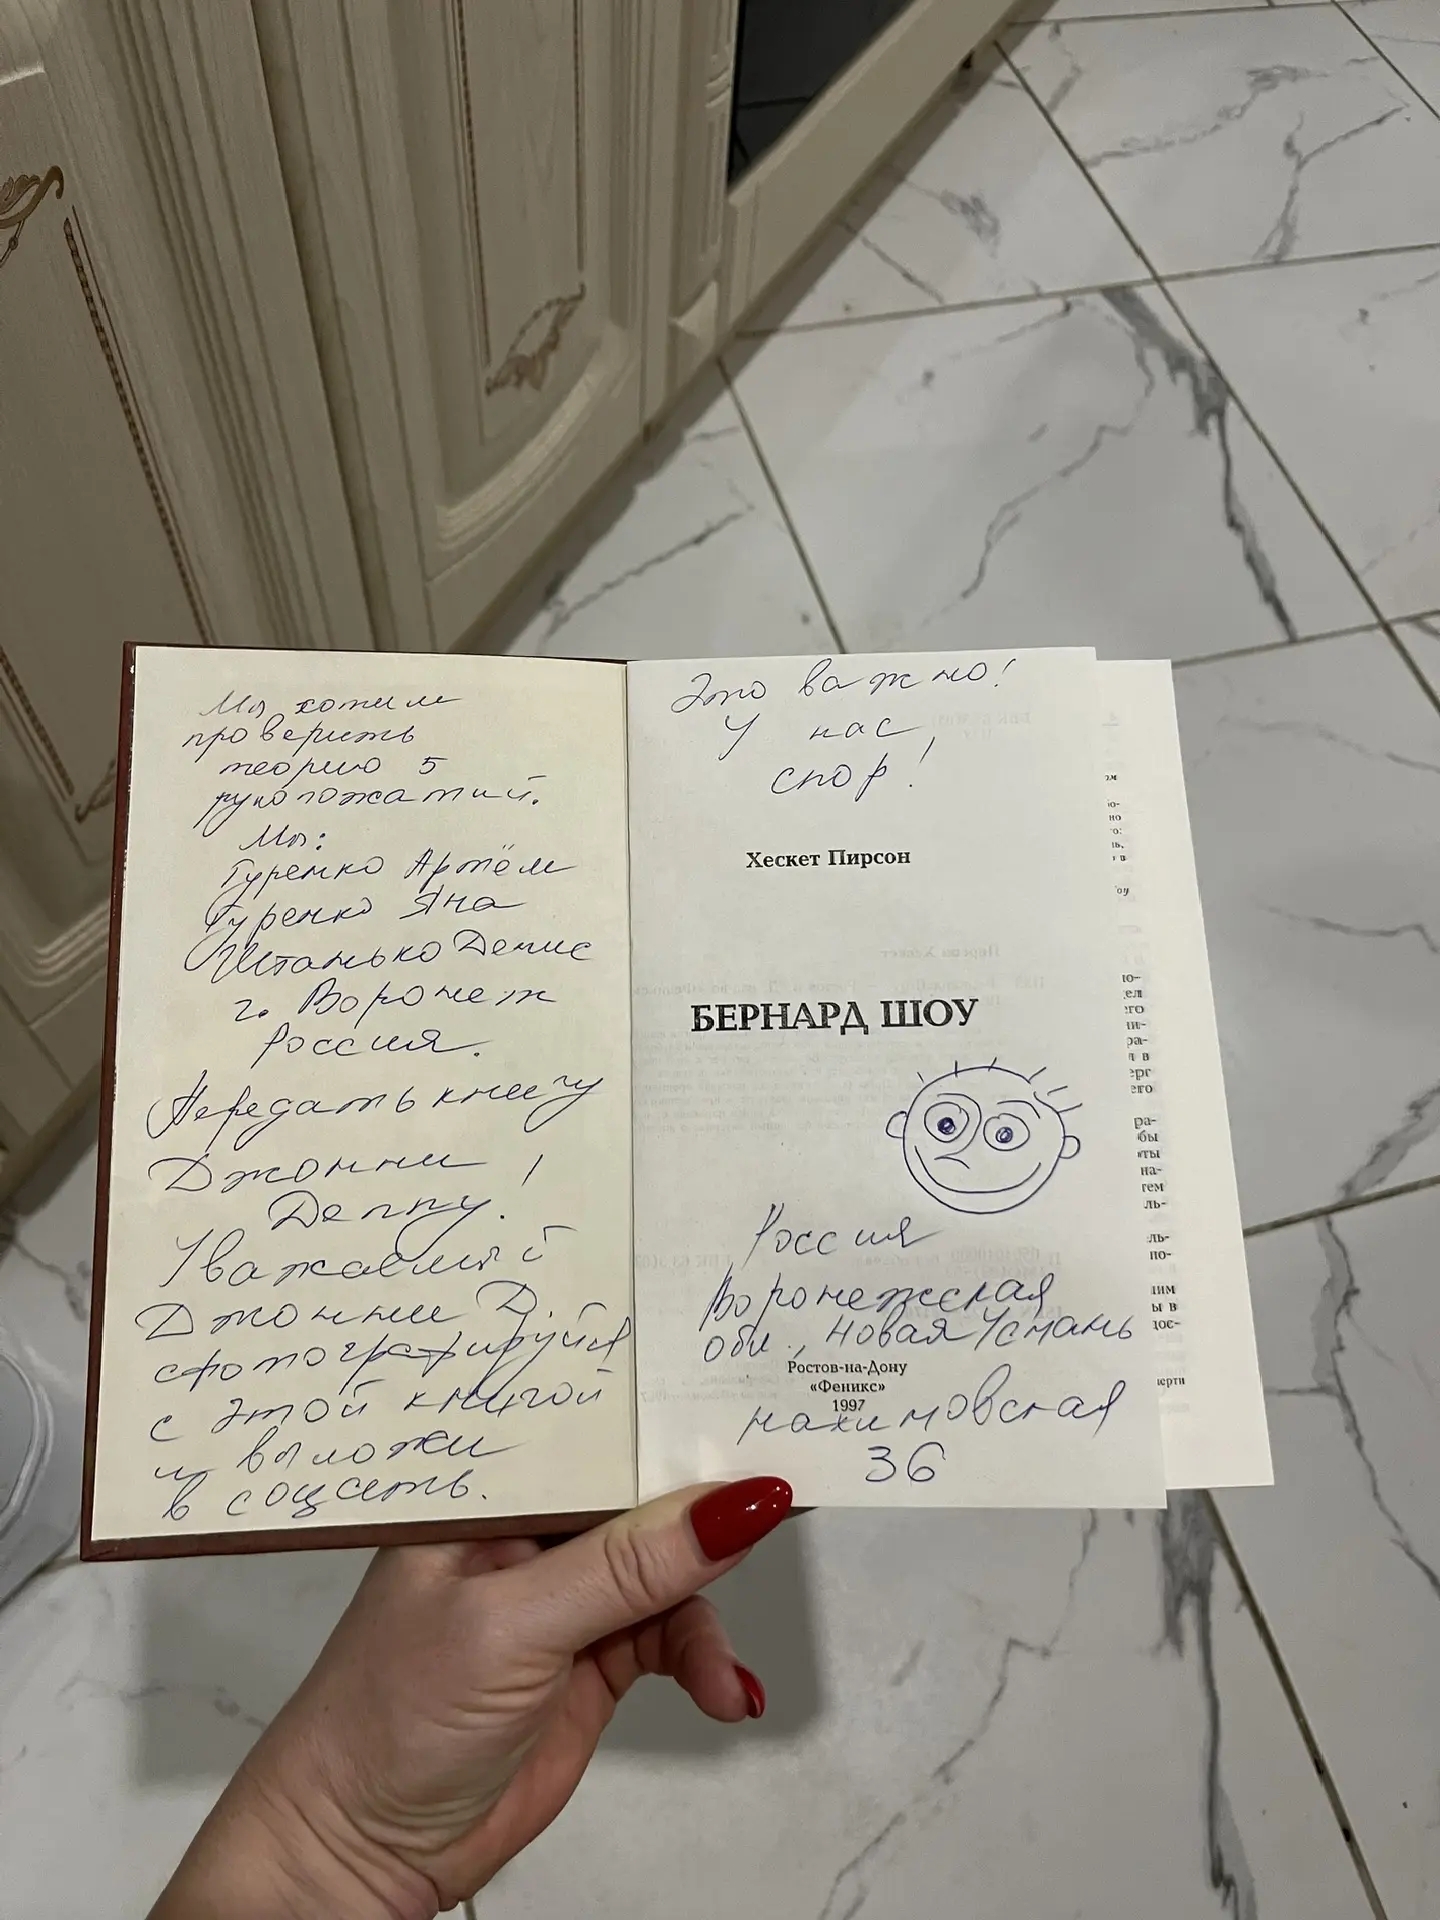 Мы хотим
проверить
теорию 5
рукопожатий.
Мы:
Гуренко Артём
Гуренко Яна
Штанько Денис
г. Воронеж
Россия.
Передать книгу
Джонни
Деппу!
Уважаемый
Джонни Д.
сфотографируйся
с этой книгой
и выложи
в соцсеть.
Это важно!
У нас
спор!
Хескет Пирсон
БЕРНАРД ШОУ
Россия
Воронежская
обл., Новая Усмань
Ростов-на-Дону
«Феникс»
1997
Нахимовская
36